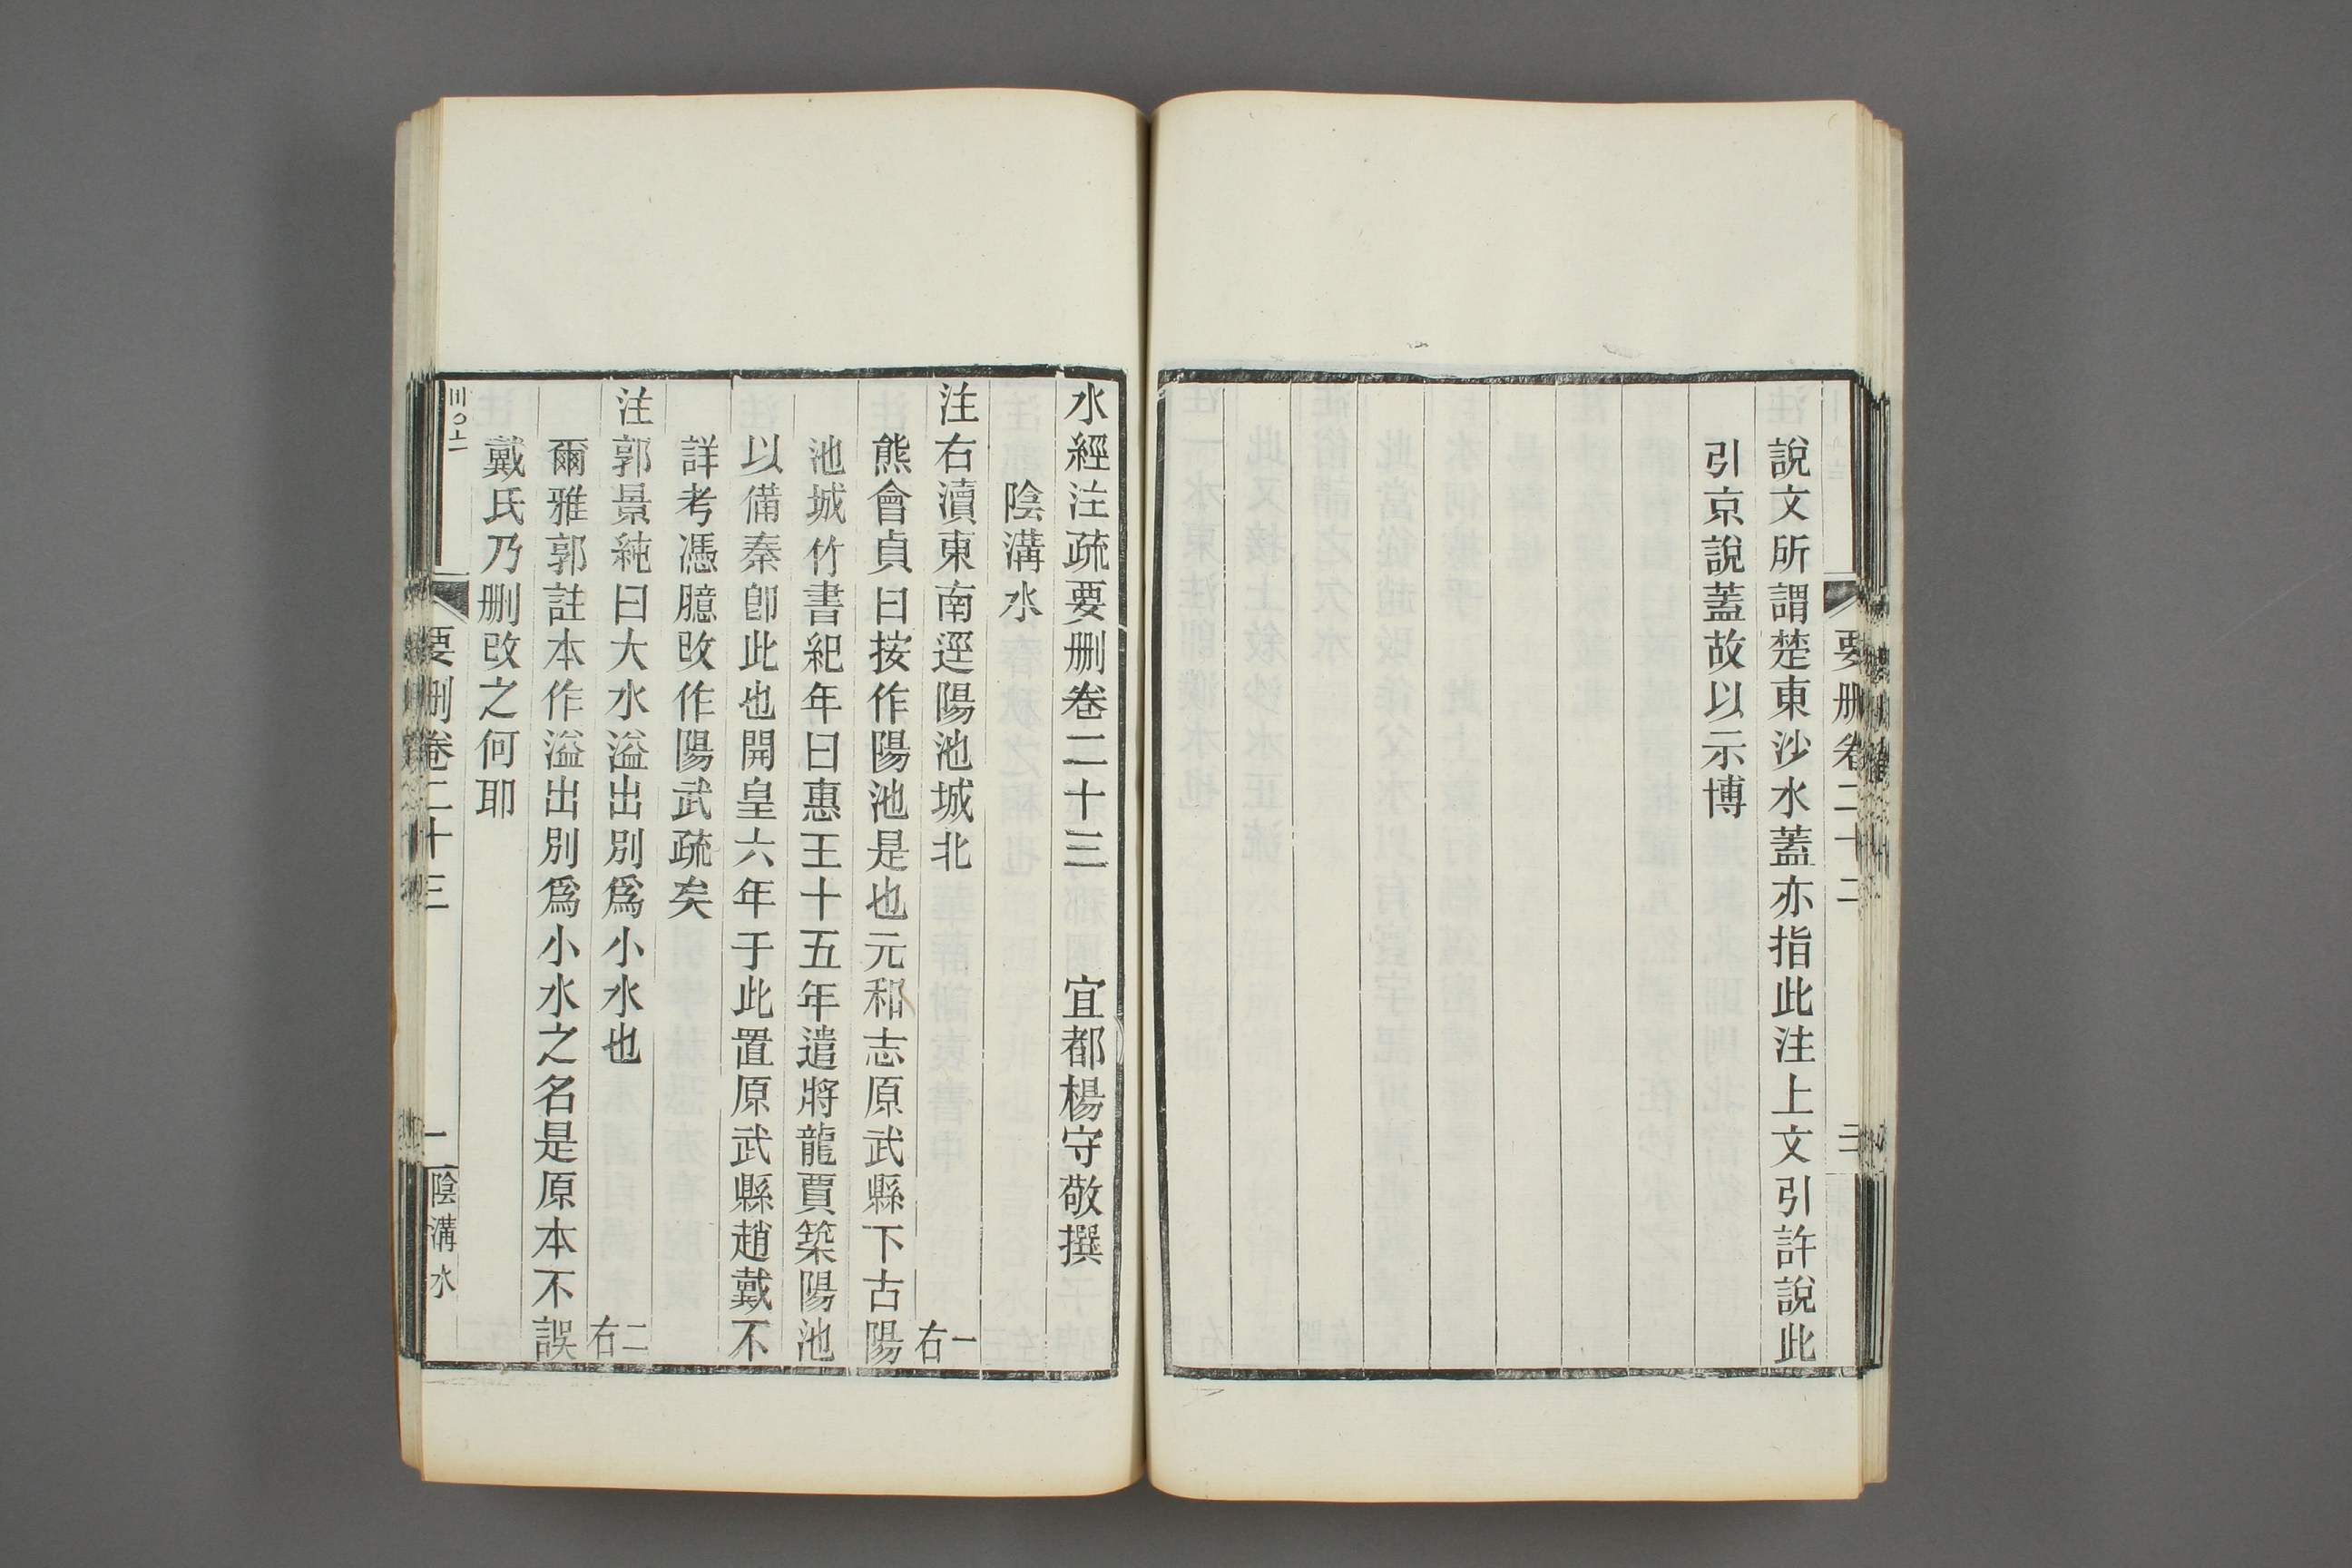 要删卷二十二
三
說文所謂楚東沙水蓋亦指此注上文引許說此
引京說蓋故以示博
水經注疏要删卷二十三 宜都楊守敬撰
陰溝水
注右瀆東南逕陽池城北 一右
熊會貞曰按作陽池是也元和志原武縣下古陽
池城竹書紀年曰惠王十五年遣將龍賈築陽池
以備秦卽此也開皇六年于此置原武縣趙戴不
詳考憑臆改作陽武疏矣
注郭景純曰大水溢出別爲小水也 二右
爾雅郭註本作溢出別爲小水之名是原本不誤
戴氏乃删改之何耶
要删卷二十三
一
陰溝水